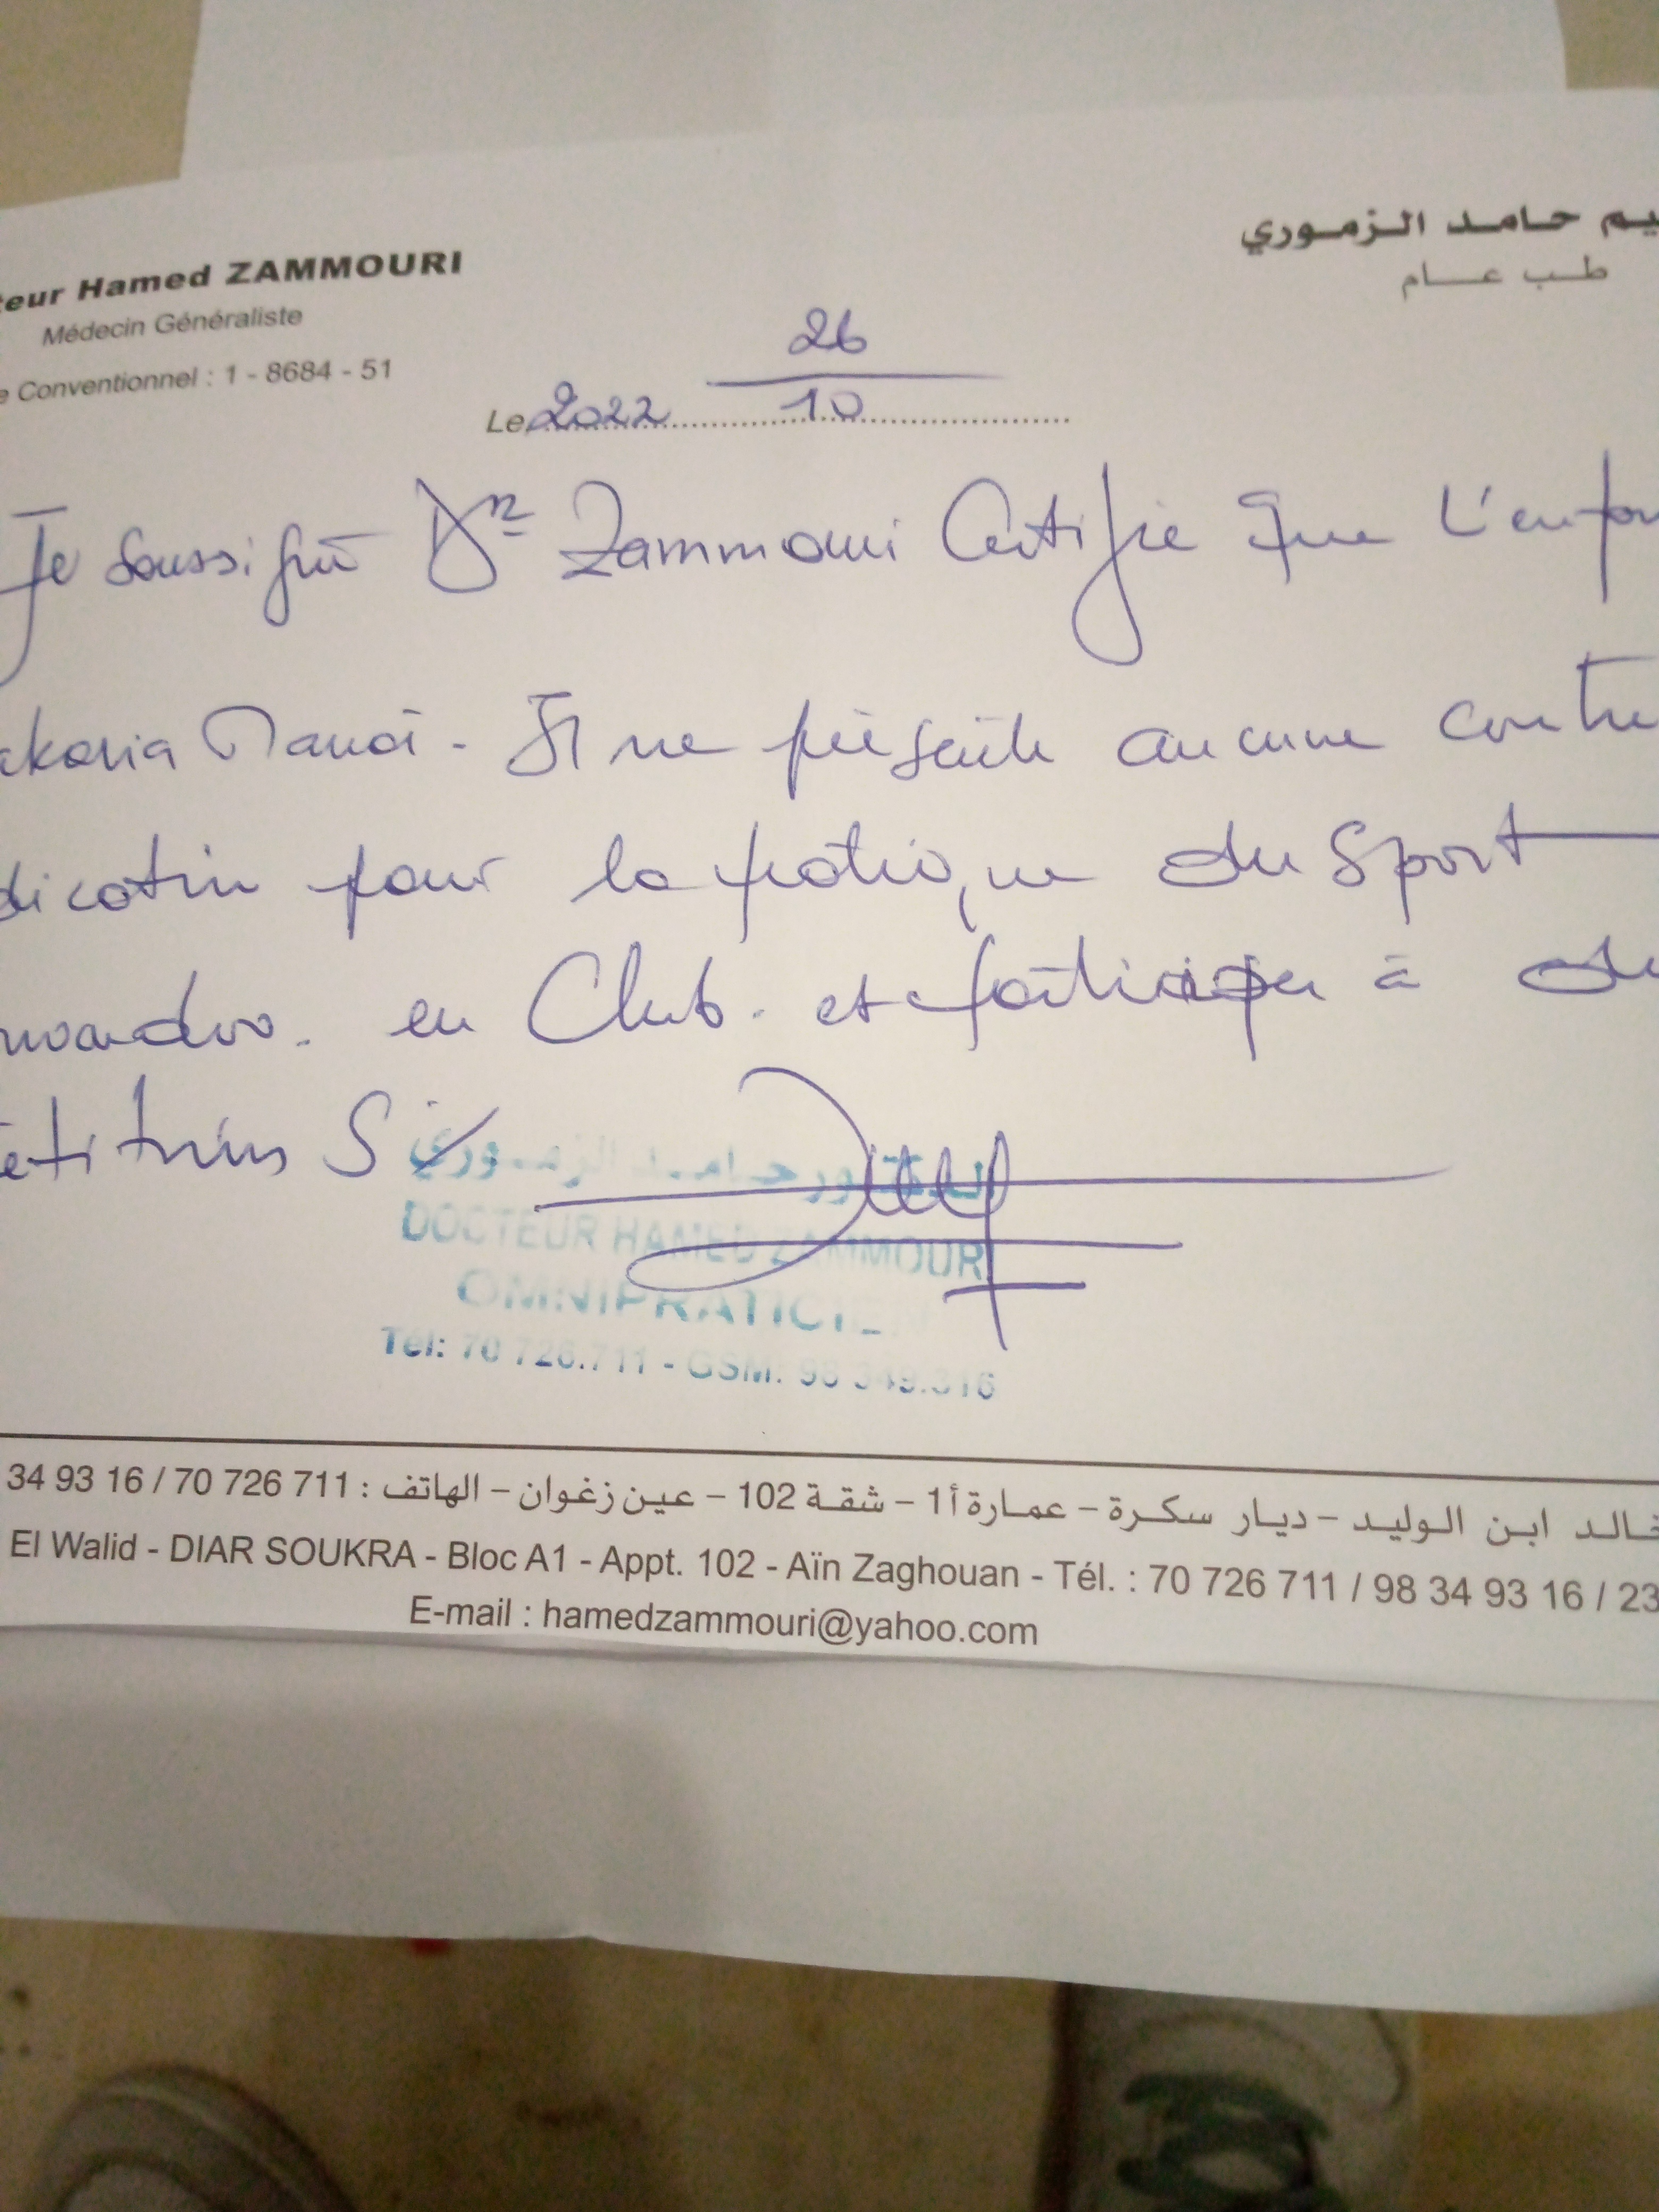 teur Hamed ZAMMOURI
Médecin Généraliste
e Conventionnel : 1 - 8684 - 51
يم حامد الزموري
طب عام
26
Le 2022 10
Je soussigné Dr Zammouri Certifie que L'enfan
akaria . Il ne présente aucune contre
dication pour la pratique du Sport
en Club. et participer à de
étitions S
الدكتور حامد الزموري
DOCTEUR HAMED ZAMMOURI
OMNIPRATICIEN
Tél: 70 726.711 - GSM: 98 349.316
خالد ابن الوليد - ديار سكرة - عمارة أ1 - شقة 102 - عين زغوان - الهاتف : 70 726 711 / 34 93 16
El Walid - DIAR SOUKRA - Bloc A1 - Appt. 102 - Aïn Zaghouan - Tél. : 70 726 711 / 98 34 93 16 / 23
E-mail : hamedzammouri@yahoo.com